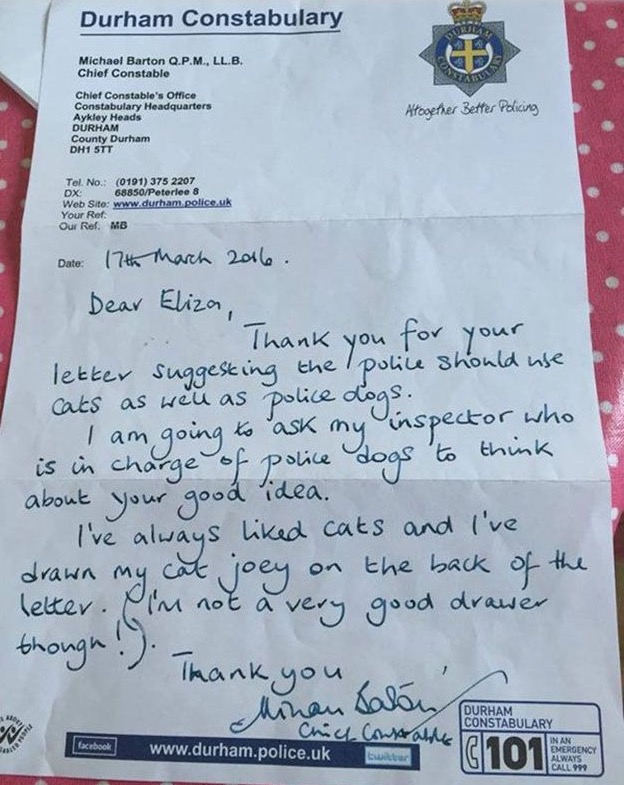 Durham Constabulary
Michael Barton Q.P.M., LL.B.
Chief Constable
Chief Constable's Office
Constabulary Headquarters
Aykley Heads
DURHAM
County Durham
DH1 5TT
DURHAM
CONSTABULARY
Altogether Better Policing
Tel. No.: (0191) 375 2207
DX: 68850/Peterlee 8
Web Site: www.durham.police.uk
Your Ref:
Our Ref: MB
Date: 17th March 2016.
Dear Eliza,
Thank you for your
letter suggesting the police should use
cats as well as police dogs.
I am going to ask my inspector who
is in charge of police dogs to think
about your good idea.
I've always liked cats and I've
drawn my cat joey on the back of the
letter. (I'm not a very good drawer
though!).
Thank you
Chief Constable
facebook www.durham.police.uk twitter
DURHAM
CONSTABULARY
101
IN AN
EMERGENCY
ALWAYS
CALL 999